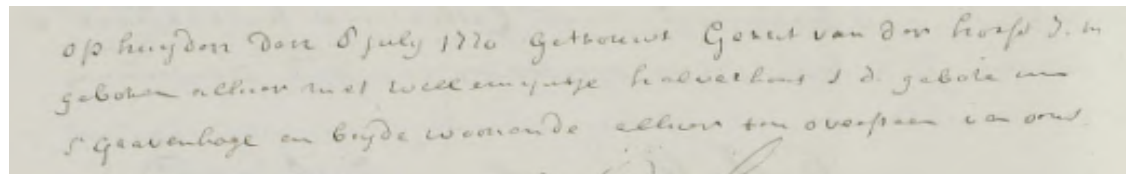 op huijden den 8 july 1770 getrouwt Gerrit van der horst J. m
geboren alhier met willemijntje halverhout J d. gebore in
s Gravenhage en beijde woonende alhier ten overstaen van ons